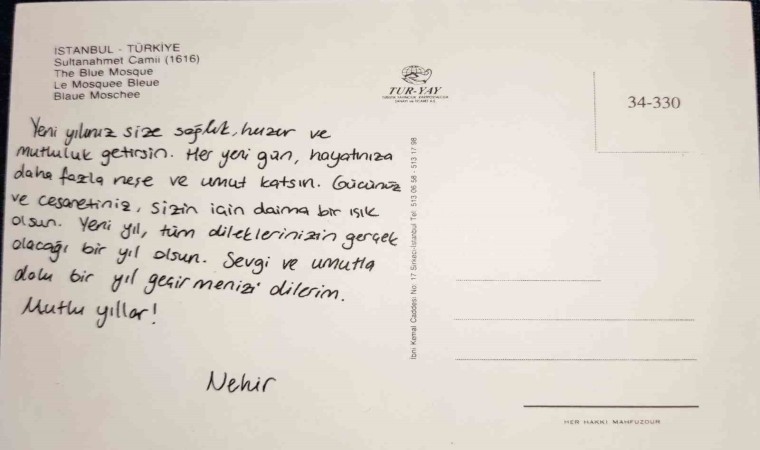 İSTANBUL - TÜRKİYE
Sultanahmet Camii (1616)
The Blue Mosque
Le Mosquee Bleue
Blaue Moschee
TUR-YAY
34-330
Yeni yılınız size sağlık, huzur ve
mutluluk getirsin. Her yeni gün, hayatınıza
daha fazla neşe ve umut katsın. Gücünüz
ve cesaretiniz, sizin için daima bir ışık
olsun. Yeni yıl, tüm dileklerinizin gerçek
olacağı bir yıl olsun. Sevgi ve umutla
dolu bir yıl geçirmenizi dilerim.
Mutlu yıllar!
Nehir
İbni Kemal Caddesi No: 17 Sirkeci-İstanbul Tel: 513 06 58 - 513 17 98
HER HAKKI MAHFUZDUR